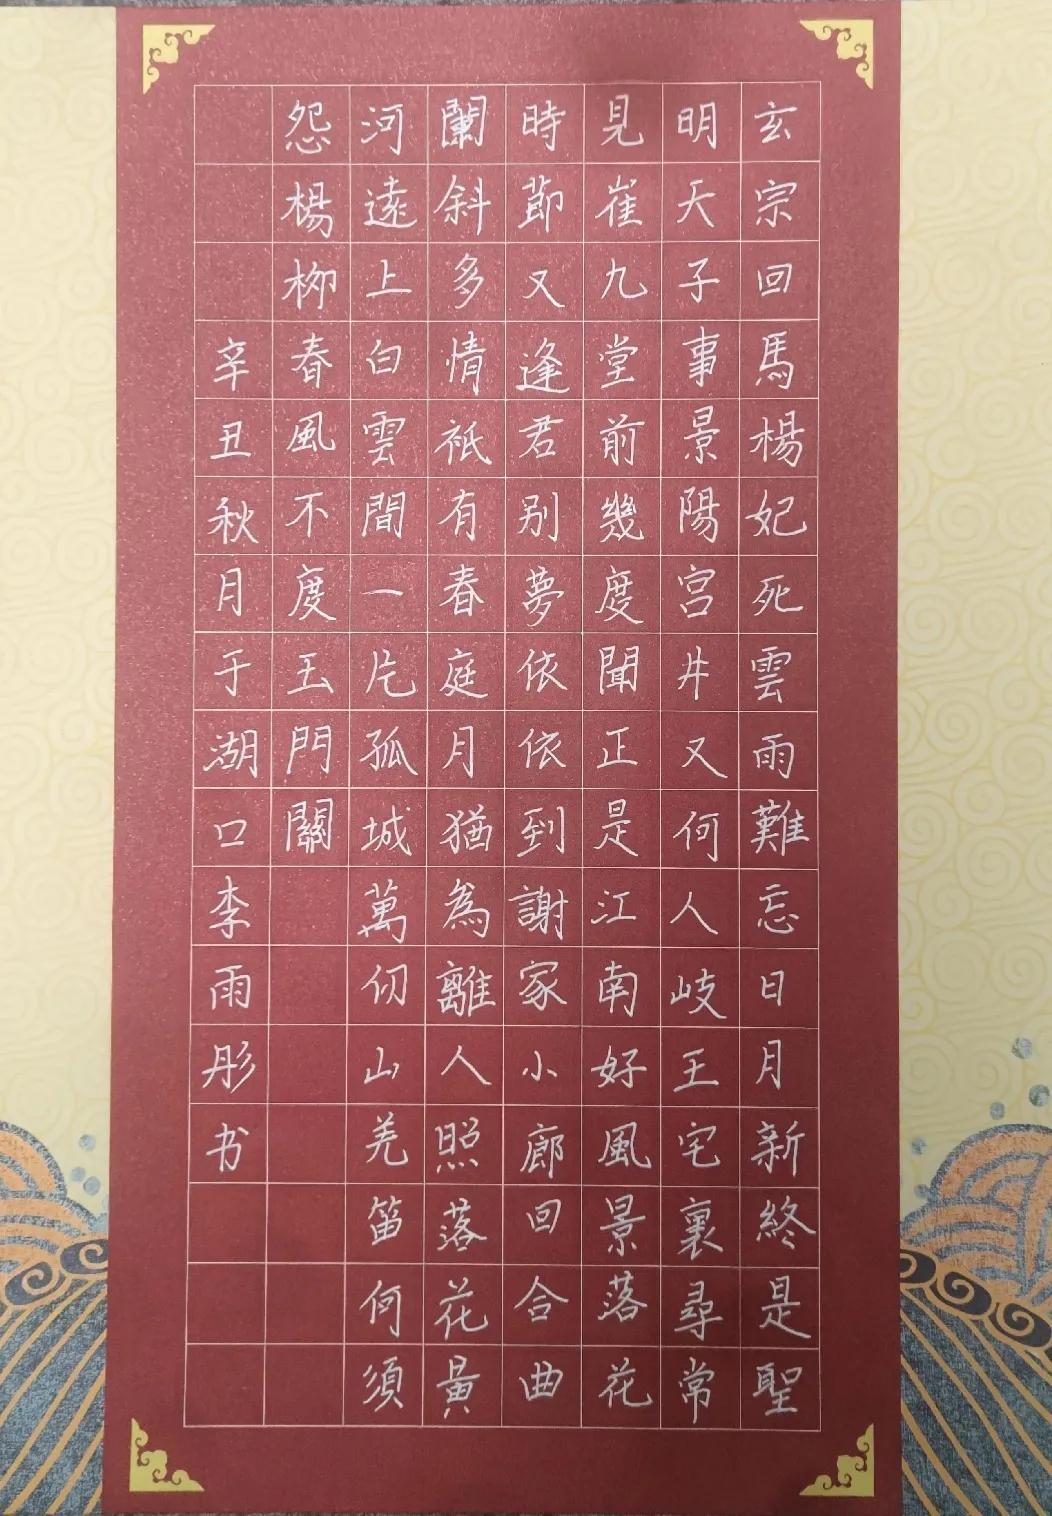 玄宗回馬楊妃死雲雨難忘日月新終是聖
明天子事景陽宫井又何人岐王宅裏尋常
見崔九堂前幾度聞正是江南好風景落花
時節又逢君别夢依依到謝家小廊回合曲
闌斜多情祇有春庭月猶為離人照落花黄
河遠上白雲間一片孤城萬仞山羌笛何須
怨楊柳春風不度玉門關
辛丑秋月于湖口李雨彤书